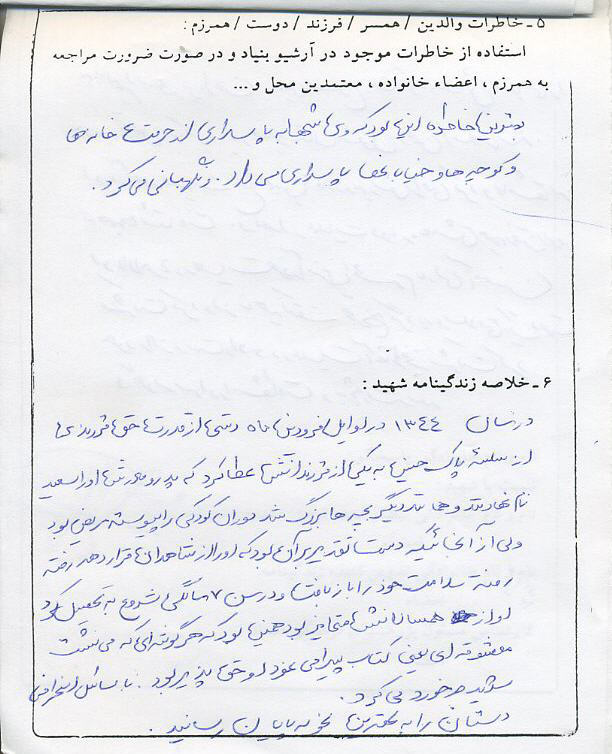 ۵ ـ خاطرات والدین / همسر / فرزند / دوست / همرزم :
استفاده از خاطرات موجود در آرشیو بنیاد و در صورت ضرورت مراجعه
به همرزم ، اعضاء خانواده ، معتمدین محل و ...
بهترین خاطره این بود که وی شبها به پاسداری از حرمت خانه ها
و کوچه ها و خیابانها پاسداری می داد. و نگهبانی می کرد.
۶ ـ خلاصه زندگینامه شهید :
در سال ۱۳۴۴ در اوایل فروردین ماه دستی از قدرت حق فرزندی
از سلسله پاک حسین به یکی از فرزندانش عطا کرد که پدر و مادرش او را سعید
نام نهادند و مانند دیگر بچه ها بزرگ شد دوران کودکی را پیوسته مریض بود
ولی از آنجائیکه دست تقدیر بر آن بود که او را از شاهدان قرار دهد رفته
رفته سلامت خود را باز یافت و در سن ۷ سالگی شروع به تحصیل کرد
او از همسالانش متمایز بود همین بود که هر گوشه ای که می نشست
معشوقه ای یعنی کتاب پیدا می نمود او حق پذیر بود. با مسائل انحرافی
شدید برخورد می کرد.
دبستان را به بهترین نحو به پایان رسانید.